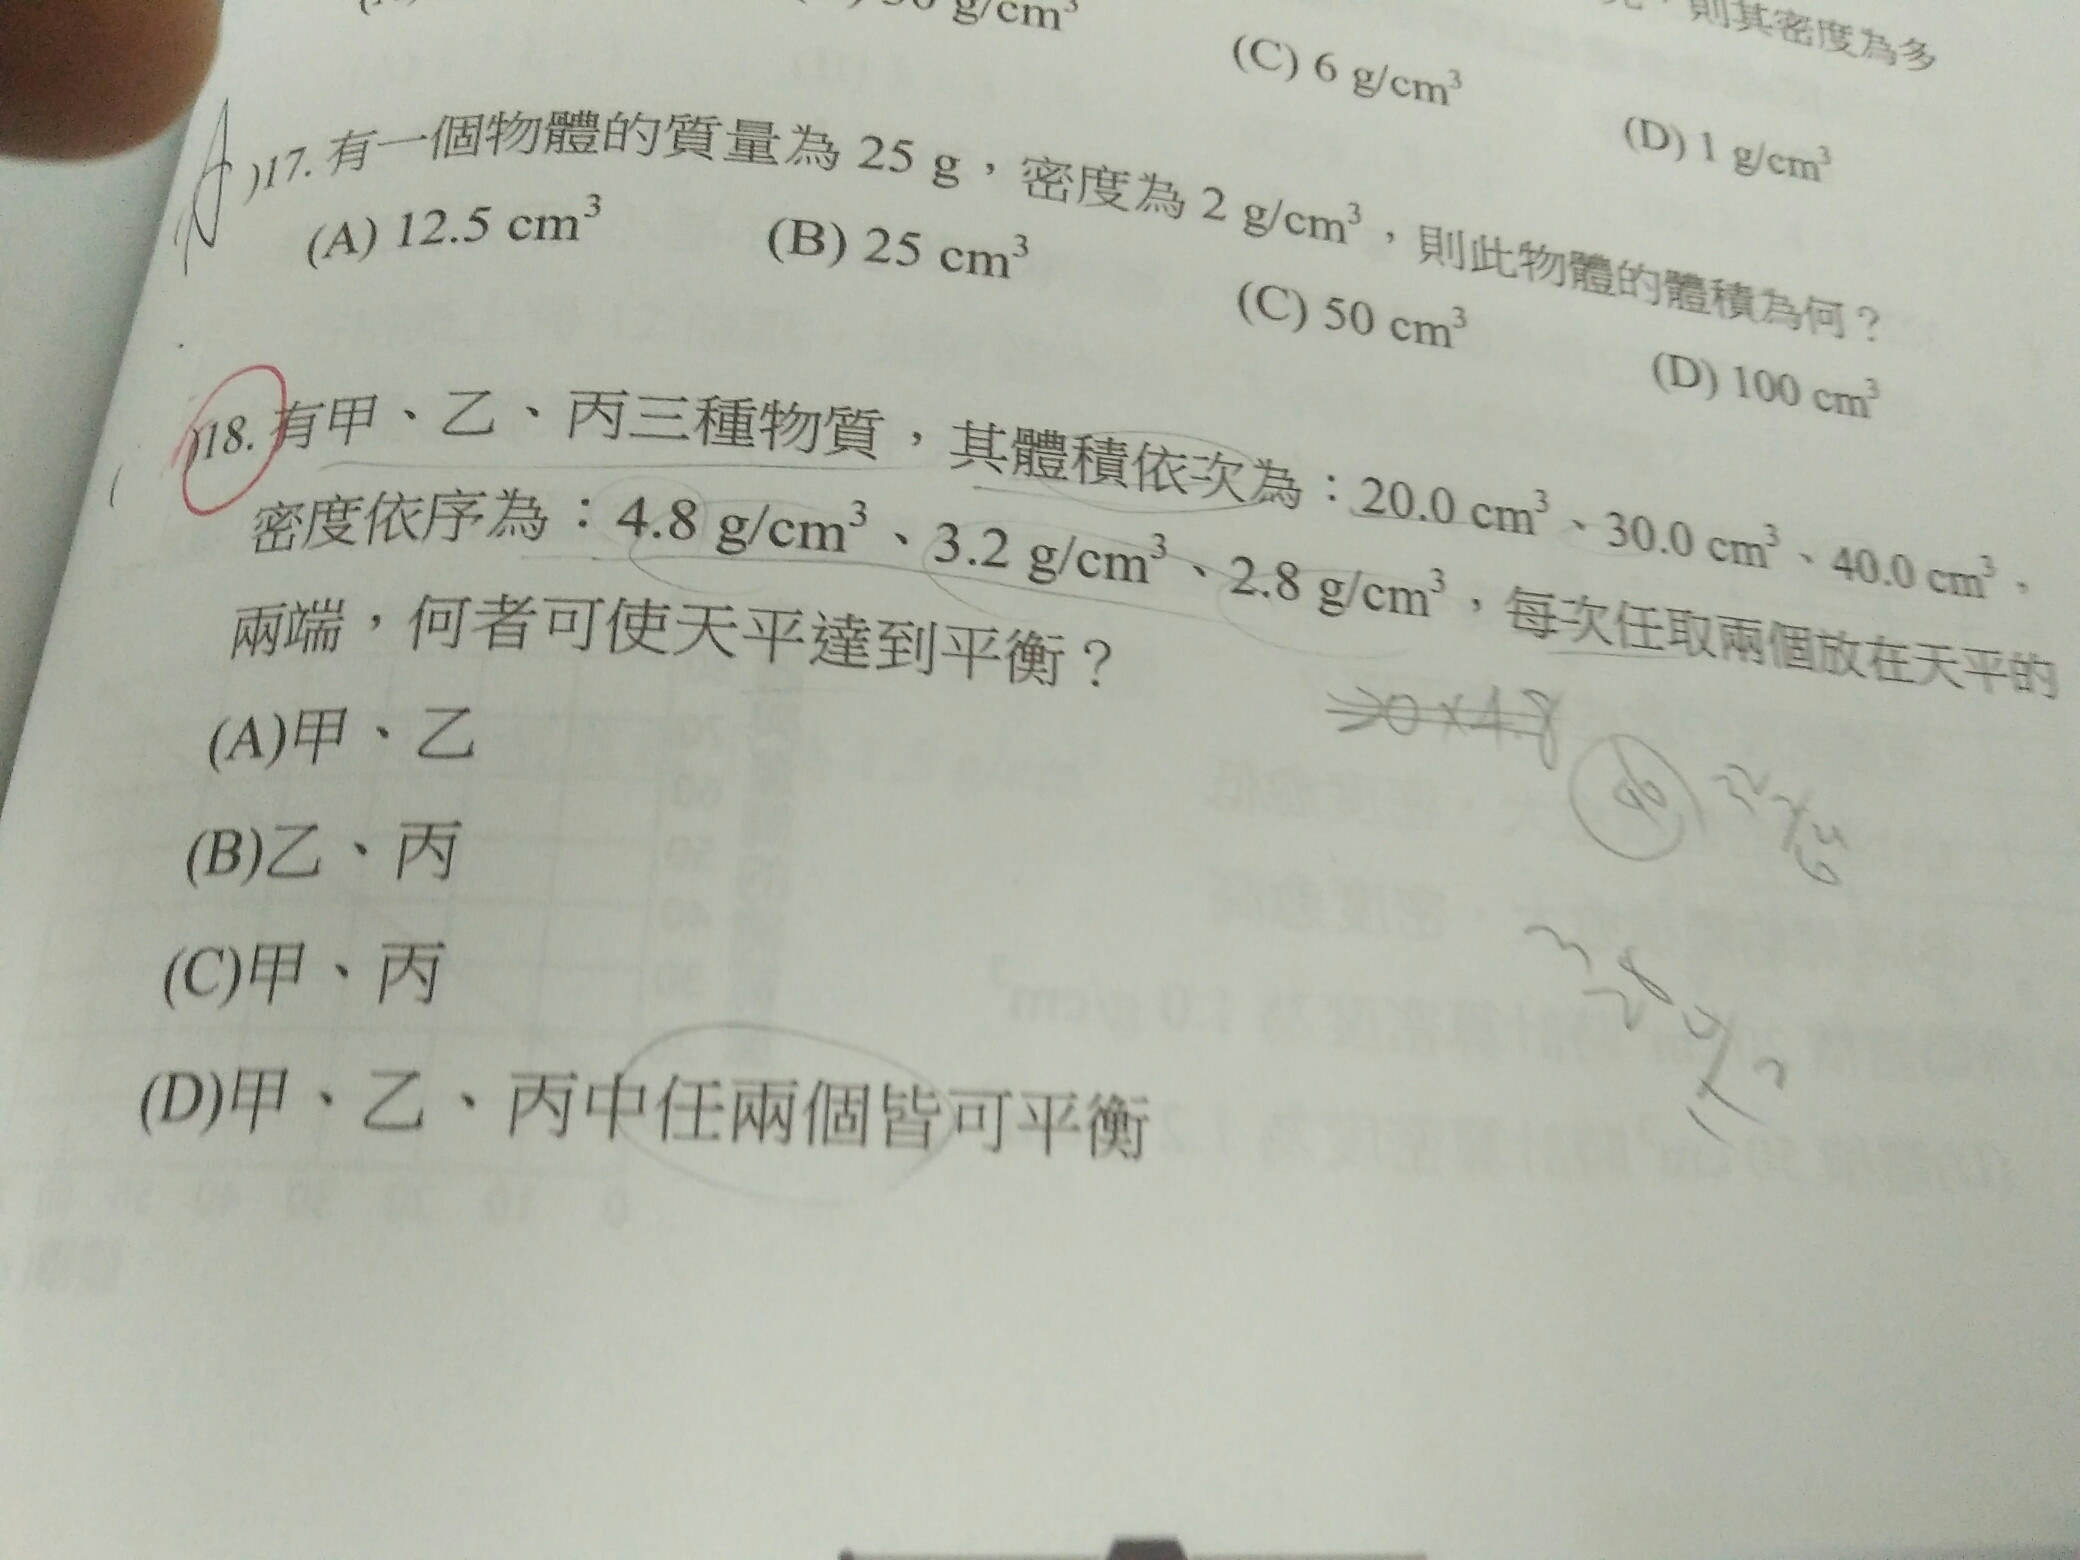 則其密度為多
g/cm³ (C) 6 g/cm³ (D) 1 g/cm³
A )17. 有一個物體的質量為 25 g，密度為 2 g/cm³，則此物體的體積為何？
(A) 12.5 cm³ (B) 25 cm³ (C) 50 cm³ (D) 100 cm³
)18. 有甲、乙、丙三種物質，其體積依次為：20.0 cm³、30.0 cm³、40.0 cm³，
密度依序為：4.8 g/cm³、3.2 g/cm³、2.8 g/cm³，每次任取兩個放在天平的
兩端，何者可使天平達到平衡？
20×4.8
96
(A)甲、乙
(B)乙、丙
(C)甲、丙
(D)甲、乙、丙中任兩個皆可平衡